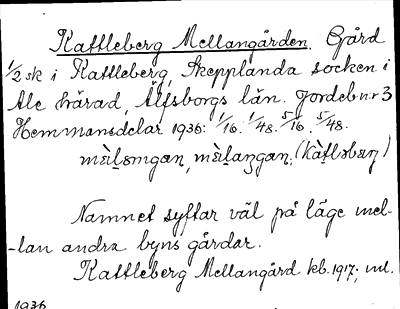 Kattleberg Mellangården. Gård
1/2 sk i Kattleberg, Skepplanda socken i
Ale härad, Älfsborgs län. Jordebnr 3
Hemmansdelar 1936: 1/16. 1/48. 5/16. 5/48.
Namnet syftar väl på läge mel-
-lan andra byns gårdar.
Kattleberg Mellangård kb. 1917; ml.
1936